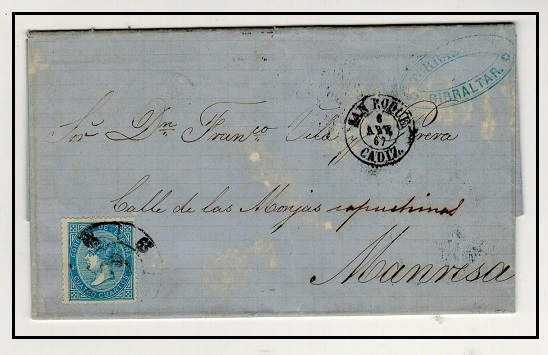 GIBRALTAR.
SAN ROQUE
6
ABR
67
CADIZ.
Sor Dn Franco Vila y
Calle de las Monjas capuchinas
Manresa
63 63
CUATRO CUARTOS